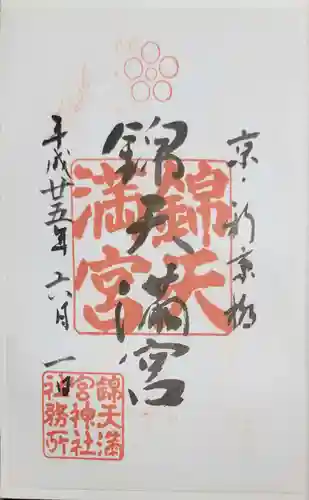 京・新京極
錦天満宮
錦天満宮
平成廿五年六月一日
錦天満宮神社社務所